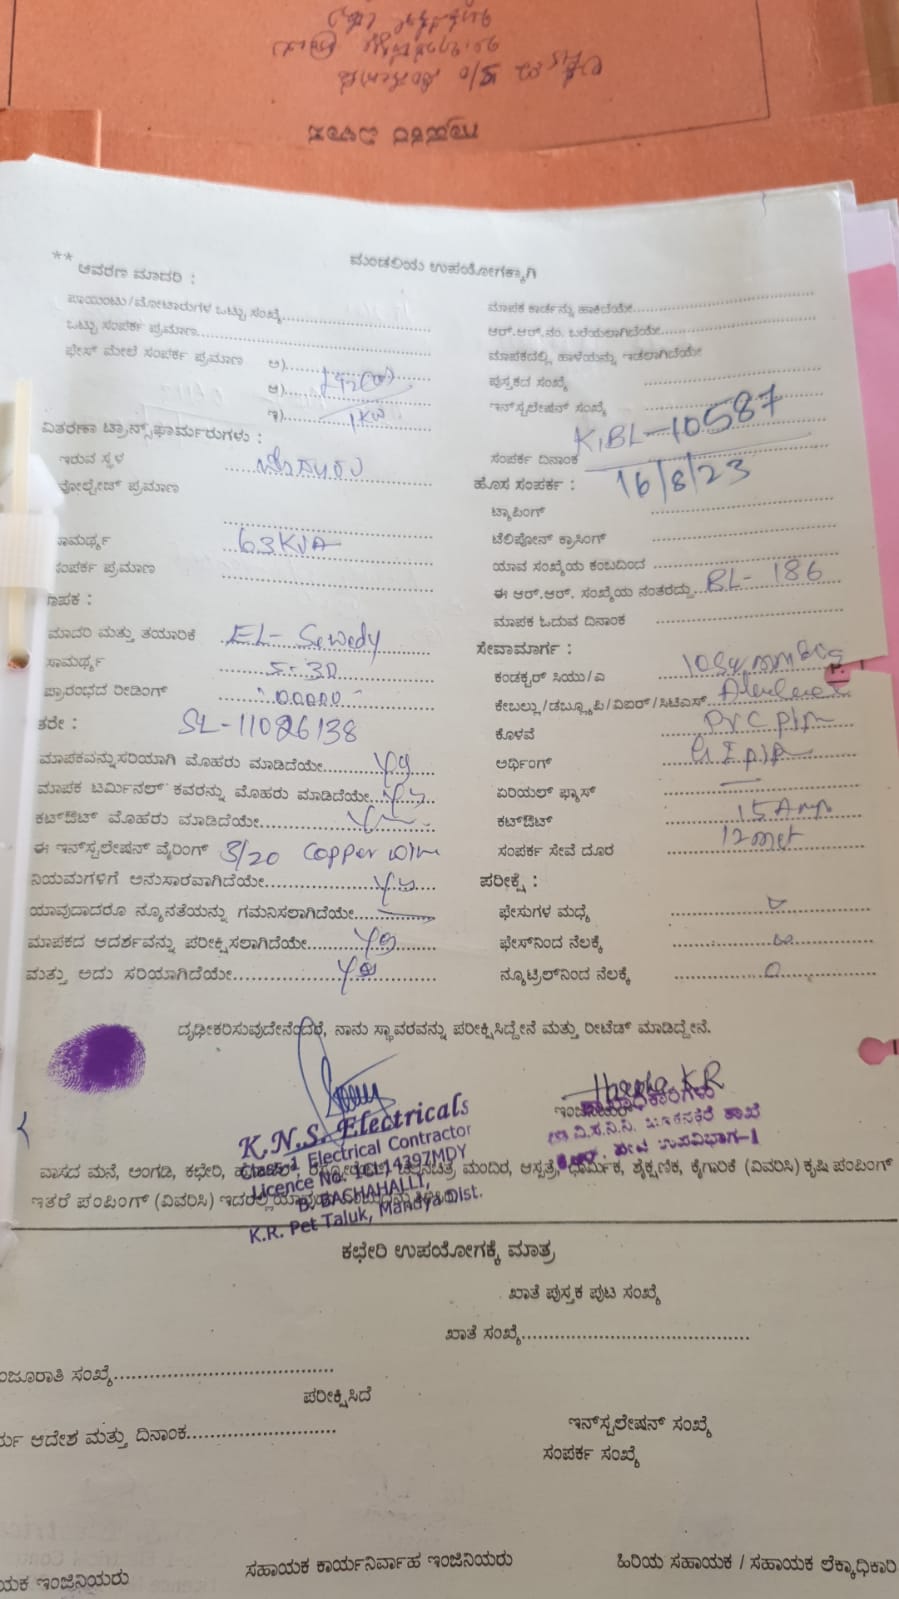 ಗ್ರಾಹಕರ ವಿಳಾಸ
** ಆವರಣ ಮಾದರಿ :
ಮಂಡಲಿಯ ಉಪಯೋಗಕ್ಕಾಗಿ
ಪಾಯಿಂಟು/ಮೋಟಾರುಗಳ ಒಟ್ಟು ಸಂಖ್ಯೆ
ಒಟ್ಟು ಸಂಪರ್ಕ ಪ್ರಮಾಣ
ಫೇಸ್ ಮೇಲೆ ಸಂಪರ್ಕ ಪ್ರಮಾಣ ಅ)
ಆ)
ಇ) 1KW
ವಿತರಣಾ ಟ್ರಾನ್ಸ್‌ಫಾರ್ಮರುಗಳು :
ಇರುವ ಸ್ಥಳ
ವೋಲ್ಟೇಜ್ ಪ್ರಮಾಣ
ಸಾಮರ್ಥ್ಯ 63KVA
ಸಂಪರ್ಕ ಪ್ರಮಾಣ
ಮಾಪಕ :
ಮಾದರಿ ಮತ್ತು ತಯಾರಿಕೆ EL- Sewedy
ಸಾಮರ್ಥ್ಯ 5-30
ಪ್ರಾರಂಭದ ರೀಡಿಂಗ್ 00000
ತರೇ : SL-11026138
ಮಾಪಕವನ್ನು ಸರಿಯಾಗಿ ಮೊಹರು ಮಾಡಿದೆಯೇ
ಮಾಪಕ ಟರ್ಮಿನಲ್ ಕವರನ್ನು ಮೊಹರು ಮಾಡಿದೆಯೇ
ಕಟ್‌ಔಟ್ ಮೊಹರು ಮಾಡಿದೆಯೇ
ಈ ಇನ್‌ಸ್ಟಲೇಷನ್ ವೈರಿಂಗ್ 3/20 Copper
ನಿಯಮಗಳಿಗೆ ಅನುಸಾರವಾಗಿದೆಯೇ
ಯಾವುದಾದರೂ ನ್ಯೂನತೆಯನ್ನು ಗಮನಿಸಲಾಗಿದೆಯೇ
ಮಾಪಕದ ಆದರ್ಶವನ್ನು ಪರೀಕ್ಷಿಸಲಾಗಿದೆಯೇ
ಮತ್ತು ಅದು ಸರಿಯಾಗಿದೆಯೇ
ಮಾಪಕ ಕಾರ್ಡನ್ನು ಹಾಕಿದೆಯೇ
ಆರ್.ಆರ್.ನಂ. ಬರೆಯಲಾಗಿದೆಯೇ
ಮಾಪಕದಲ್ಲಿ ಹಾಳೆಯನ್ನು ಇಡಲಾಗಿದೆಯೇ
ಪುಸ್ತಕದ ಸಂಖ್ಯೆ
ಇನ್‌ಸ್ಟಲೇಷನ್ ಸಂಖ್ಯೆ KIBL-10587
ಸಂಪರ್ಕ ದಿನಾಂಕ 16/8/23
ಹೊಸ ಸಂಪರ್ಕ :
ಟ್ಯಾಪಿಂಗ್
ಟೆಲಿಫೋನ್ ಕ್ರಾಸಿಂಗ್
ಯಾವ ಸಂಖ್ಯೆಯ ಕಂಬದಿಂದ
ಈ ಆರ್.ಆರ್. ಸಂಖ್ಯೆಯ ನಂತರದ್ದು BL-186
ಮಾಪಕ ಓದುವ ದಿನಾಂಕ
ಸೇವಾಮಾರ್ಗ :
ಕಂಡಕ್ಟರ್ ಸಿಯು/ಎ
ಕೇಬಲ್ಲು/ಡಬ್ಲ್ಯೂಪಿ/ವಿಐಆರ್/ಸಿಟಿಎಸ್
ಕೊಳವೆ PVC
ಅರ್ಥಿಂಗ್ GI
ಏರಿಯಲ್ ಫ್ಯೂಸ್
ಕಟ್‌ಔಟ್ 15Amp
ಸಂಪರ್ಕ ಸೇವೆ ದೂರ 12met
ಪರೀಕ್ಷೆ :
ಫೇಸುಗಳ ಮಧ್ಯೆ
ಫೇಸ್‌ನಿಂದ ನೆಲಕ್ಕೆ
ನ್ಯೂಟ್ರಲ್‌ನಿಂದ ನೆಲಕ್ಕೆ
ದೃಢೀಕರಿಸುವುದೇನೆಂದರೆ, ನಾನು ಸ್ಥಾವರವನ್ನು ಪರೀಕ್ಷಿಸಿದ್ದೇನೆ ಮತ್ತು ರೀಟೆಡ್ ಮಾಡಿದ್ದೇನೆ.
K.N.S. Electricals
Class-1 Electrical Contractor
Licence No. 1CL14397MDY
B. BACHAHALLI,
K.R. Pet Taluk, Mandya Dist.
ಇಂಜಿನಿಯರ್
ವಾಸದ ಮನೆ, ಅಂಗಡಿ, ಕಛೇರಿ, ಮಂದಿರ, ಆಸ್ಪತ್ರೆ, ಧಾರ್ಮಿಕ, ಶೈಕ್ಷಣಿಕ, ಕೈಗಾರಿಕೆ (ವಿವರಿಸಿ) ಕೃಷಿ ಪಂಪಿಂಗ್
ಇತರೆ ಪಂಪಿಂಗ್ (ವಿವರಿಸಿ)
ಕಛೇರಿ ಉಪಯೋಗಕ್ಕೆ ಮಾತ್ರ
ಖಾತೆ ಪುಸ್ತಕ ಪುಟ ಸಂಖ್ಯೆ
ಖಾತೆ ಸಂಖ್ಯೆ
ಂಜೂರಾತಿ ಸಂಖ್ಯೆ
ಪರೀಕ್ಷಿಸಿದೆ
ರ್ಯ ಆದೇಶ ಮತ್ತು ದಿನಾಂಕ
ಇನ್‌ಸ್ಟಲೇಷನ್ ಸಂಖ್ಯೆ
ಸಂಪರ್ಕ ಸಂಖ್ಯೆ
ಯಕ ಇಂಜಿನಿಯರು
ಸಹಾಯಕ ಕಾರ್ಯನಿರ್ವಾಹ ಇಂಜಿನಿಯರು
ಹಿರಿಯ ಸಹಾಯಕ / ಸಹಾಯಕ ಲೆಕ್ಕಾಧಿಕಾರಿ